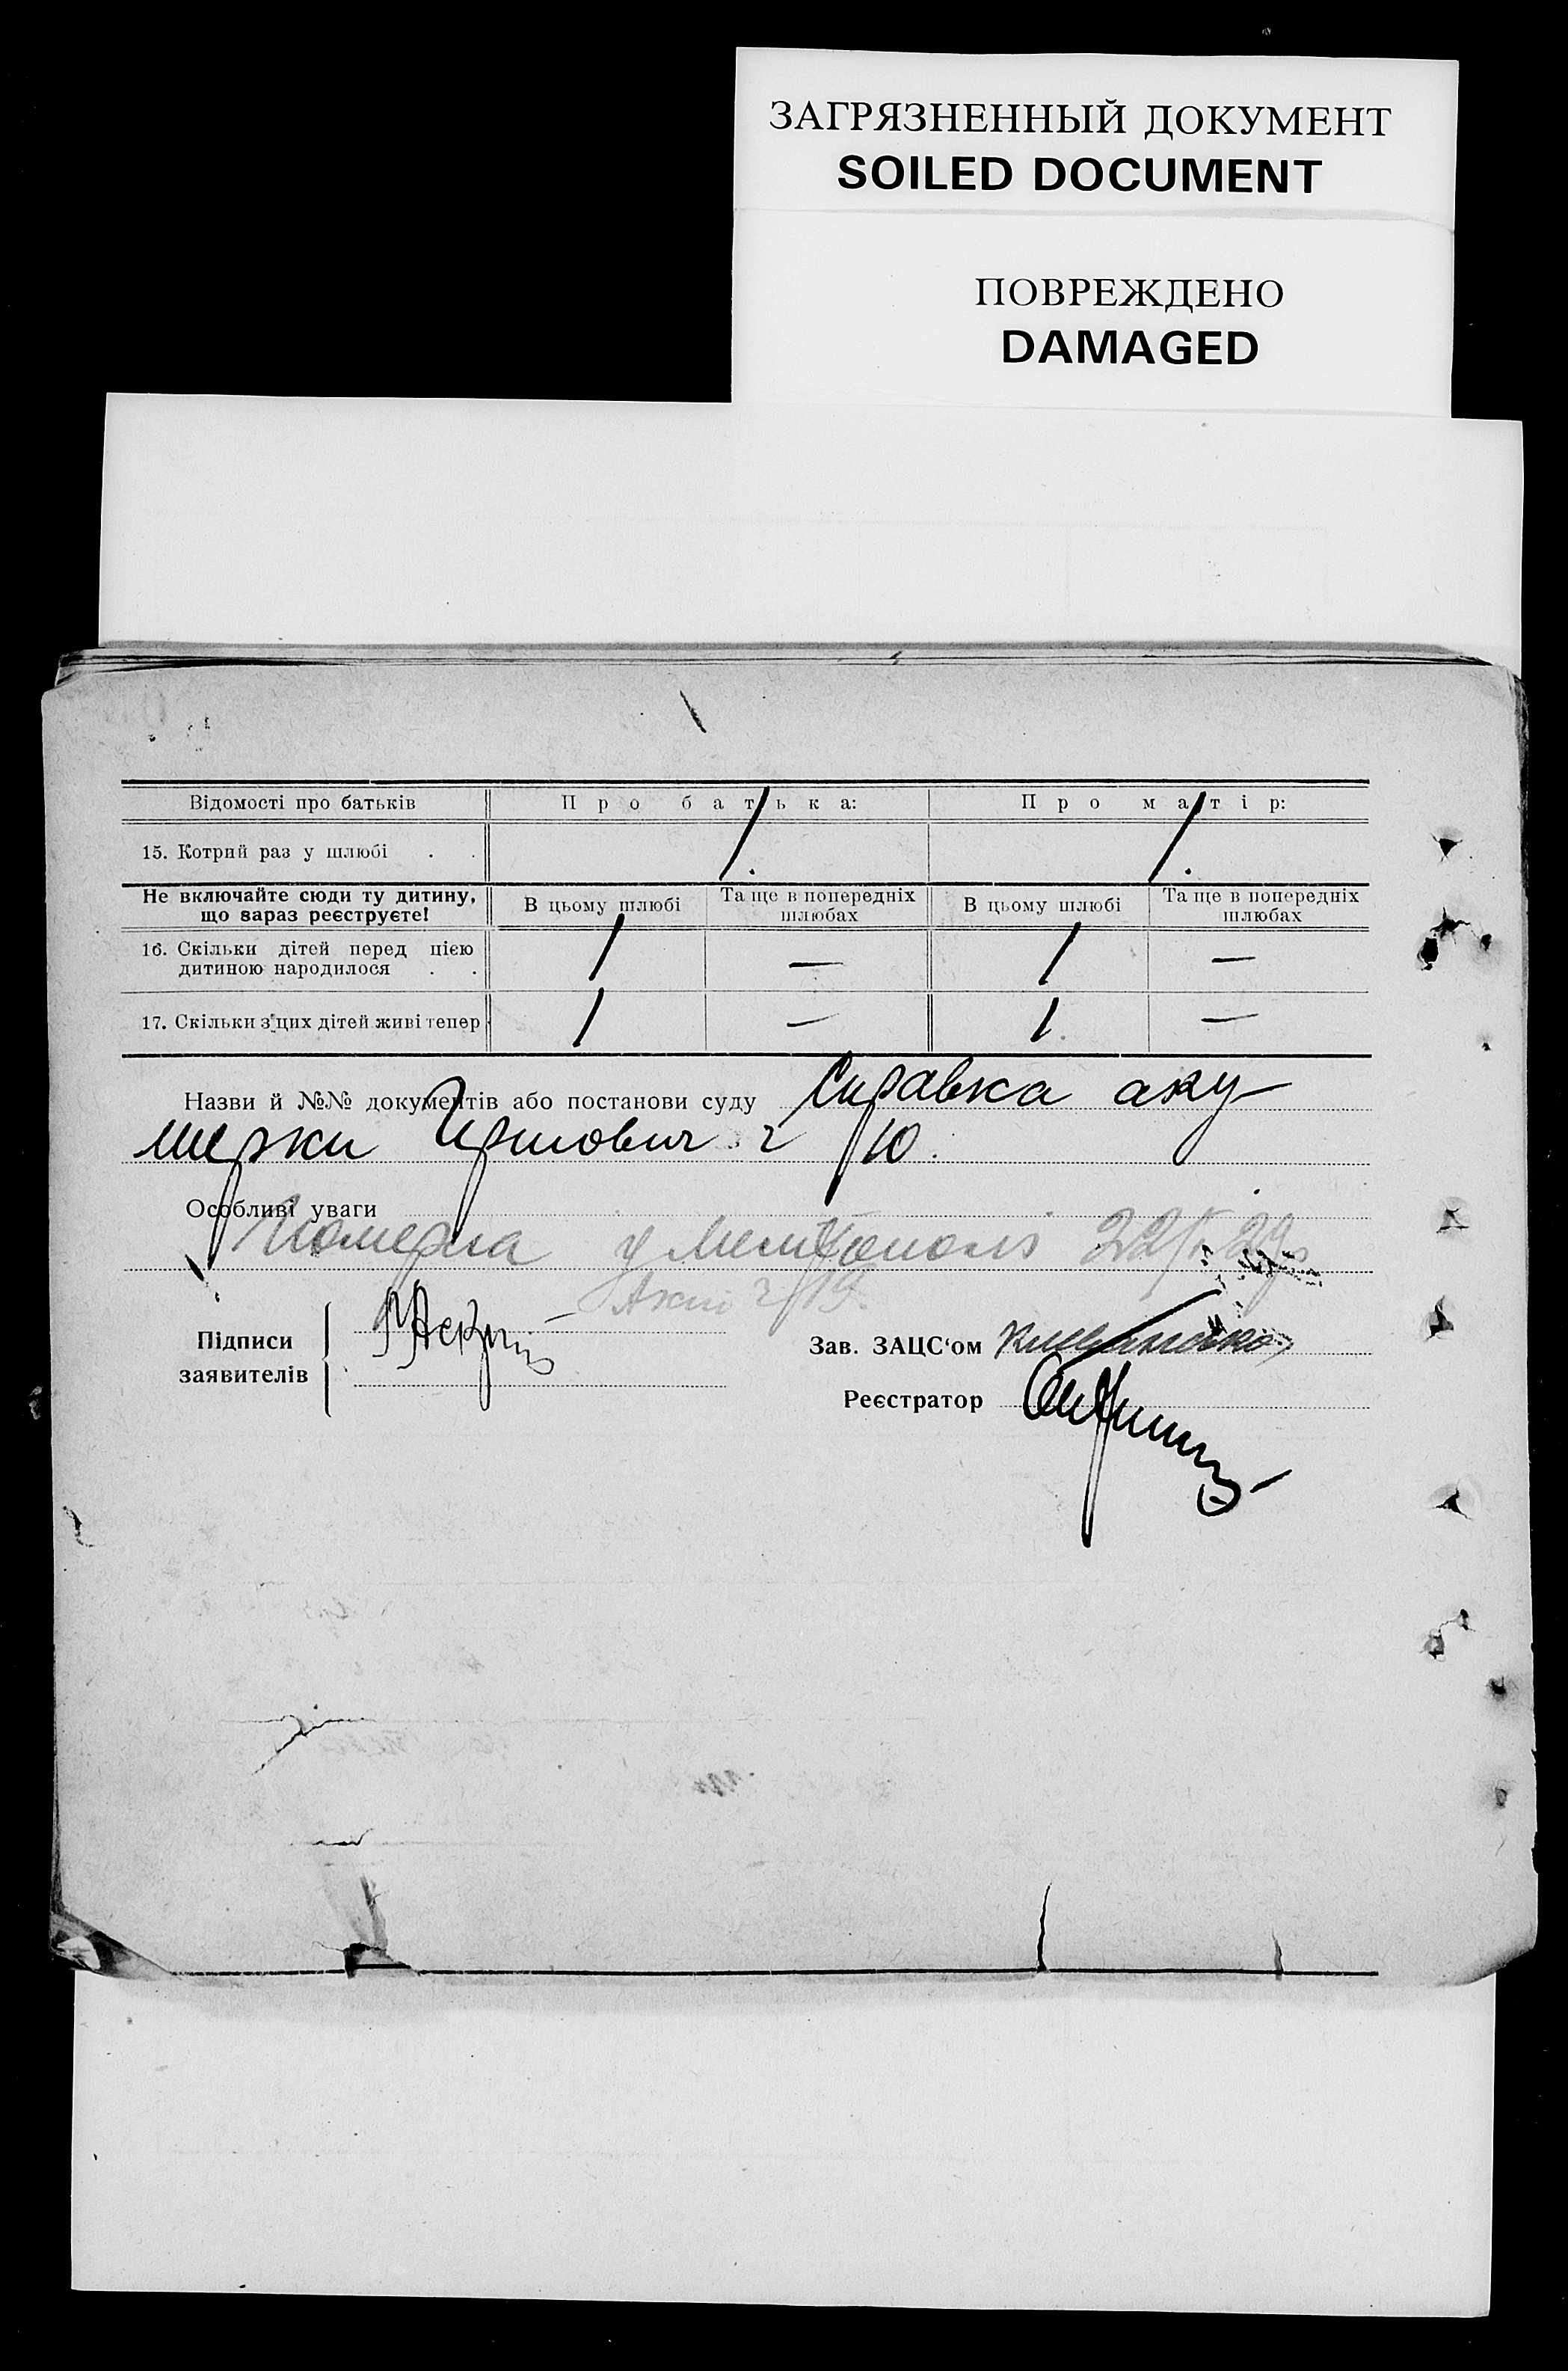 ЗАГРЯЗНЕННЫЙ ДОКУМЕНТ
SOILED DOCUMENT
ПОВРЕЖДЕНО
DAMAGED
Відомості про батьків Про батька: Про матір:
15. Котрий раз у шлюбі . . 1. 1.
Не включайте сюди ту дитину, що зараз реєструєте! В цьому шлюбі Та ще в попередніх шлюбах В цьому шлюбі Та ще в попередніх шлюбах
16. Скільки дітей перед цією дитиною народилося . . 1 — 1 —
17. Скільки з цих дітей живі тепер 1 — 1. —
Назви й №№ документів або постанови суду Справка аку
шерки ч 10.
Особливі уваги
Померла у 22/ 29
Акт ч 19.
Підписи заявителів
Зав. ЗАЦС‘ом
Реєстратор